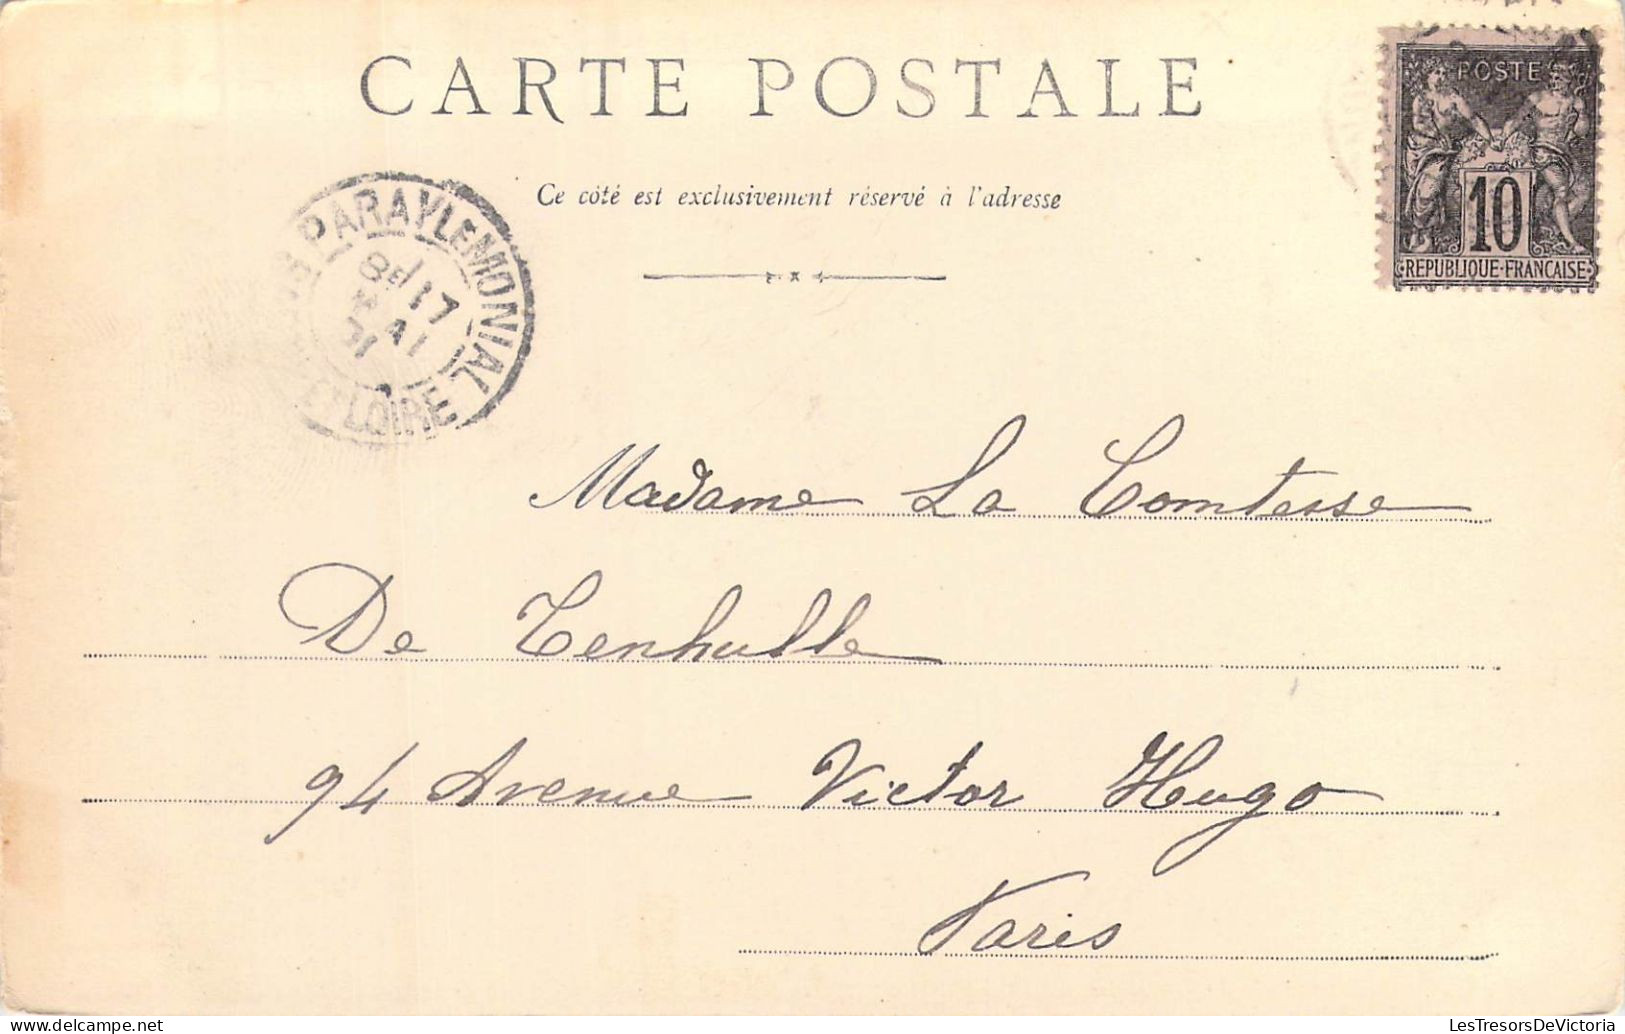 CARTE POSTALE
POSTE
10
REPUBLIQUE·FRANCAISE
Ce côté est exclusivement réservé à l'adresse
PARAY LE MONIAL
8E/17
LOIRE
Madame La Comtesse
De Tenhulle
94 Avenue Victor Hugo
Paris
LesTresorsDeVictoria